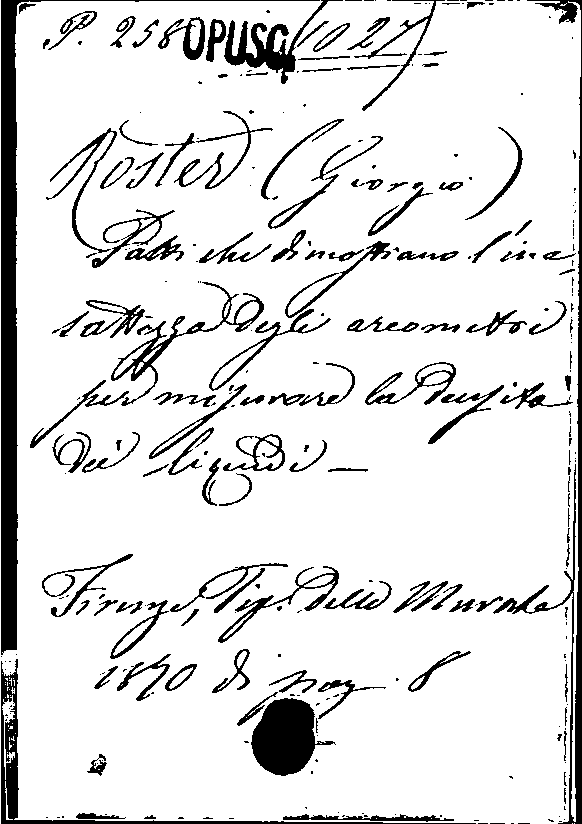 P. 258 OPUSC. (1027)
Roster (Giorgio)
Fatti che dimostrano l'ine-
sattezza degli areometri
per misurare la densità
dei liquidi —
Firenze, Tip. delle Murate
1870 di pag. 8